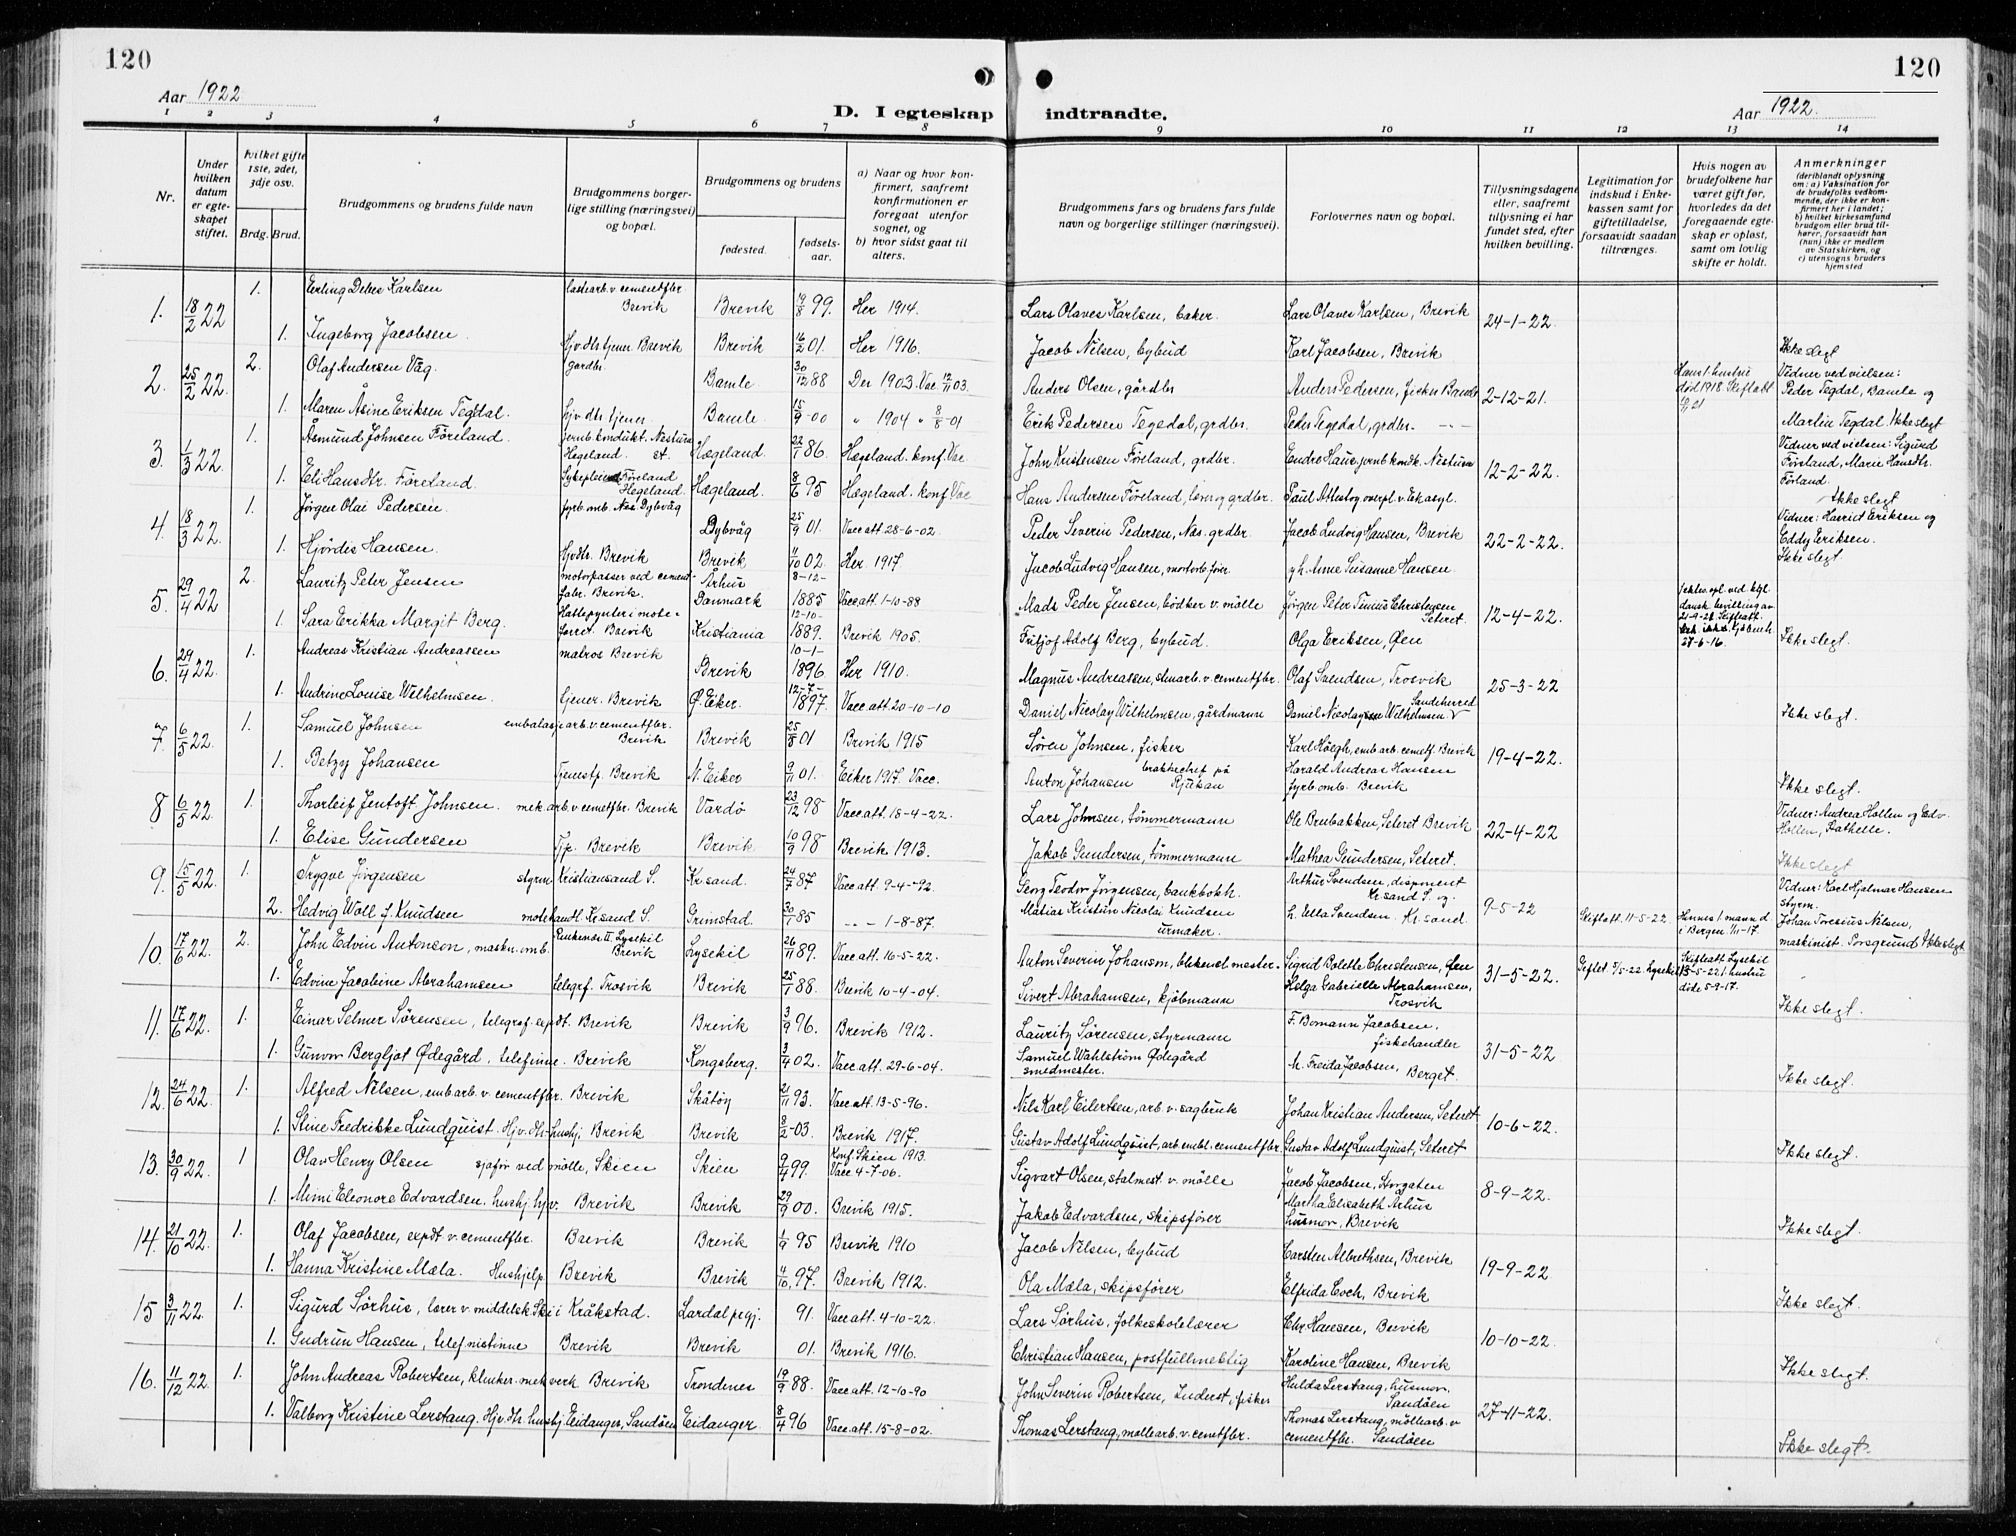 120
120
Aar 1922
D. I egteskap indtraadte.
Aar 1922.
1 2 3 4 5 6 7 8 9 10 11 12 13 14
Nr.
Under hvilken datum er egteskapet stiftet.
Hvilket gifte 1ste, 2det, 3dje osv.
Brdg. Brud.
Brudgommens og brudens fulde navn
Brudgommens borgerlige stilling (næringsvei) og bopæl.
Brudgommens og brudens
fødested.
fødselsaar.
a) Naar og hvor konfirmert, saafremt konfirmationen er foregaat utenfor sognet, og
b) hvor sidst gaat til alters.
Brudgommens fars og brudens fars fulde navn og borgerlige stillinger (næringsvei).
Forlovernes navn og bopæl.
Tillysningsdagene eller, saafremt tillysning ei har fundet sted, efter hvilken bevilling.
Legitimation for indskud i Enkekassen samt for giftetilladelse, forsaavidt saadan tiltrænges.
Hvis nogen av brudefolkene har været gift før, hvorledes da det foregaaende egteskap er opløst, samt om lovlig skifte er holdt.
Anmerkninger (deriblandt oplysning om: a) Vaksination for de brudefolks vedkommende, der ikke er konfirmert her i landet; b) hvilket kirkesamfund brudgom eller brud tilhører, forsaavidt han (hun) ikke er medlem av Statskirken, og c) utensogns bruders hjemsted
1. 18/2 22 1. Erling Peter Karlsen lastearb. v. cementfbr Brevik Brevik 19/8 99. Her 1914. Lars Olaves Karlsen, baker. Lars Olaves Karlsen, Brevik 24-1-22.
1. Ingeborg Jacobsen Hjv. dtr tjener Brevik Brevik 16/2 01. Her 1916. Jacob Nilsen, bybud Karl Jacobsen, Brevik Ikke slegt
2. 25/2 22. 2. Olaf Andersen Våg gardbr. Bamle 30/12 88 Der 1903. Vac 12/11 03. Anders Olsen, gårdbr Anders Pedersen, fisker Bamle 2-12-21. Hans 1. hustru død 1918 Skifteatt 10/11 21 Vidner ved vielsen: Peder Tegdal, Bamle og
1. Maren Åsine Eriksen Tegdal. Hjv. dtr tjener Bamle 15/9 00 " 1904 " 8/8 01 Erik Pedersen Tegedal, grdbr. Peder Tegedal, grdbr. Martin Tegdal. Ikke slegt
3. 1/3 22. 1. Åsmund Johnsen Føreland. jernb. kondukt. Nestun Hægeland. st. Hægeland 22/1 86. Hægeland. konf. Vac. John Kristensen Føreland, grdbr. Endre Haus, jernb. kondk. Nestun 12-2-22. Vidner ved vielsen: Sigurd Førsland, Marie Hansdtr. Førland.
1. Eli Hansdtr. Føreland. Sykepleier Føreland Hegeland. Hægeland. 8/6 95 Hægeland. konf. Vac Hans Andersen Føreland, lærer og grdbr. Paul Attestog overpl. v. Eka syl. Ikke slegt
4. 18/3 22. 1. Jörgen Olai Pedersen. fyrb. omb. Næs Dybvåg Dybvåg 25/9 01. Vacc att. 28-6-02. Peder Severin Pedersen, Næs. grdbr. Jacob Ludvig Hansen, Brevik 22-2-22. Vidner: Harriet Eriksen og Eddy Eriksen.
1. Hjördis Hansen. Hjv dtr. Brevik Brevik 11/10 02. Her 1917 Jacob Ludvig Hansen, motorb. fører. gh. Anne Susanne Hansen. Ikke slegt
5. 29/4 22 2. Lauritz Peter Jensen motorpasser ved cementfabr. Brevik. Århus Danmark 8-12-1885 Vacc. att. 1-10-88 Mads Peder Jensen, bödker v. mölle Jörgen Peter Tinius Christensen Seteret. 12-4-22.
1. Sara Erikka Margit Berg. Hattepynter i moteforret. Brevik Kristiania 12-10-1889. Brevik 1905. Fritjof Adolf Berg, bybud. Olga Eriksen, Öen Ikke slegt.
6. 29/4 22. 1. Andreas Kristian Andreassen matros Brevik Brevik 10-1-1896 Her 1910. Magnus Andreassen, stuarb. v. cementfbr. Olaf Svendsen, Trosvik 25-3-22
1. Andrine Louise Wilhelmsen. tjener. Brevik Ø. Eiker. 12-7-1897. Vacc. att 20-10-10 Daniel Nicolay Wilhelmsen, gårdmann Daniel Nicolaysen Wilhelmsen Sandeherred Ikke slegt.
7. 6/5 22. 1. Samuel Johnsen embalasje arb. v. cementfbr. Brevik Brevik 25/8 01 Brevik 1915 Søren Johnsen, fisker Karl Höegh, emb. arb. cemetf. Brevik 19-4-22.
1. Betzy Johansen Tjenestp. Brevik N. Eiker 9/11 01. Eiker 1917. Vacc. Anton Johansen brakkechef på Rjukan Harald Andreas Hansen fyrb. omb. Brevik Ikke slegt.
8 6/5 22. 1. Thorleif Jentoft Johnsen. mek. arb. v. cemetfbr. Brevik Vardö 23/12 98 Vacc. att. 18-4-22. Lars Johnsen, tömmermann Ole Brubakken, Seteret Brevik 22-4-22 Vidner: Andrea Hollen og Edv. Hollen, Stathelle.
1. Elise Gundersen Tjp. Brevik Brevik 10/9 98 Brevik 1913. Jakob Gundersen, tömmermann Mathea Gundersen, Seteret. Ikke slegt
9. 15/5 22. 1. Trygve Jörgensen styrm Kristiansand S. Kr. sand. 24/7 87 Vacc att. 9-4-92. Georg Teodor Jörgensen, bankbokh. Arthur Svendsen, disponent Kr. sand S. og 9-5-22 Vidner: Karl Hjalmar Hansen styrm.
2. Hedvig Woll f. Knudsen motehandl. Kr. sand S. Grimstad. 30/1 85 " 1-8-87. Matias Kristian Nicolai Knudsen urmaker. h. Ella Svendsen. Kr. sand. Skifteatt. 11-5-22. Hennes 1. mann d. i Bergen 1/11-17. Johan Toresius Nilsen, maskinist. Porsgrund Ikke slegt
10. 17/6 22. 2. John Edvin Antonson, maskn. omb. Lysekil Brevik Lysekil 26/11 89. Vacc. att. 16-5-22. Anton Severin Johanson, blikkenslmester. Sigrid Bolette Christensen, Öen 31-5-22. Giftet. 5/5-22 Lysekil Skifteatt. Lysekil 13-5-22 1. hustru döde 5-9-17.
1. Edvine Jacobine Abrahamsen telegrf. Trosvik Brevik 25/1 88. Brevik 10-4-04. Sivert Abrahamsen, kjöbmann Helga Gabrielle Abrahamsen, Trosvik Ikke slegt.
11. 17/6 22. 1. Einar Selmer Sørensen, telegraf. expdt. Brevik Brevik 3/9 96. Brevik 1912. Lauritz Sørensen, styrmann F. Bomann Jacobsen, fiskehandler 31-5-22
1. Gunvor Bergljot Ødegård, telefinne. Brevik Kongsberg. 3/4 02. Vacc att. 29-6-04. Samuel Wahlström Ødegård smedmester. M. Freida Jacobsen, Berget. Ikke slegt.
12. 24/6 22. 1. Alfred Nilsen, emb arb. v. cementfbr. Brevik Skåtöy 21/11 93. Vacc att. 13-5-96. Nils Karl Eilertsen, arb. v. sagbruk Johan Kristian Andersen, Seteret 10-6-22.
1. Stine Fredrikke Lundquist. Hjv. dtr. hushj. Brevik Brevik 8/2-03. Brevik 1917. Gustav Adolf Lundquist, arb. embl. cementfbr. Gustav Adolf Lundquist, Seteret Ikke slegt.
13. 30/9 22. 1 Olav Henry Olsen sjafør ved mölle, Skien Skien 9/7 99. Konf. Skien 1913. Vacc 4-7-06. Sigvart Olsen, stalmest. v. mölle Jacob Jacobsen, Storgaten 8-9-22.
1. Mimi Eleonore Edvardsen. hushj. hjv. Brevik Brevik 29/9 00. Brevik 1915. Jakob Edvardsen, skipsfører Martha Elisabeth Århus husmor, Brevik Ikke slegt.
14. 21/10 22. 1. Olaf Jacobsen, expdt v. cementfbr. Brevik Brevik 1/9 95 Brevik 1910 Jacob Nilsen, bybud Carsten Albrethsen, Brevik 19-9-22
1. Hanna Kristine Mæla. Hushjelp Brevik Brevik 4/10 97. Brevik 1912. Ola Mæla, skipsfører Elfrida Coch, Brevik Ikke slegt.
15 3/11 22. 1. Sigurd Sørhus, lærer v. middelsk. Ski i Kråkstad. Lardal pgj. 91. Vacc att. 4-10-22. Lars Sørhus, folkeskolelærer Chr Hansen, Brevik 10-10-22.
1. Gudrun Hansen, telefnistinne Brevik Brevik 01. Brevik 1916. Christian Hansen, postfullmektig Karoline Hansen, Brevik Ikke slegt.
16. 11/12 22. 1. John Andreas Robertsen, klinker. mek verk Brevik Trondenes 19/9 88. Vacc att. 12-10-90 John Severin Robertsen, Inderst, fisker Hulda Lerstang, husmor, Sandöen 27-11-22.
1. Valborg Kristine Lerstang. Hjv. dtr. hushj Eidanger, Sandöen Eidanger 8/4 96 Vacc. att. 15-8-02. Thomas Lerstang, möllearb. v. cemetfbr. Thomas Lerstang, möllearb. v cementfbr. Sandöen Ikke slegt.